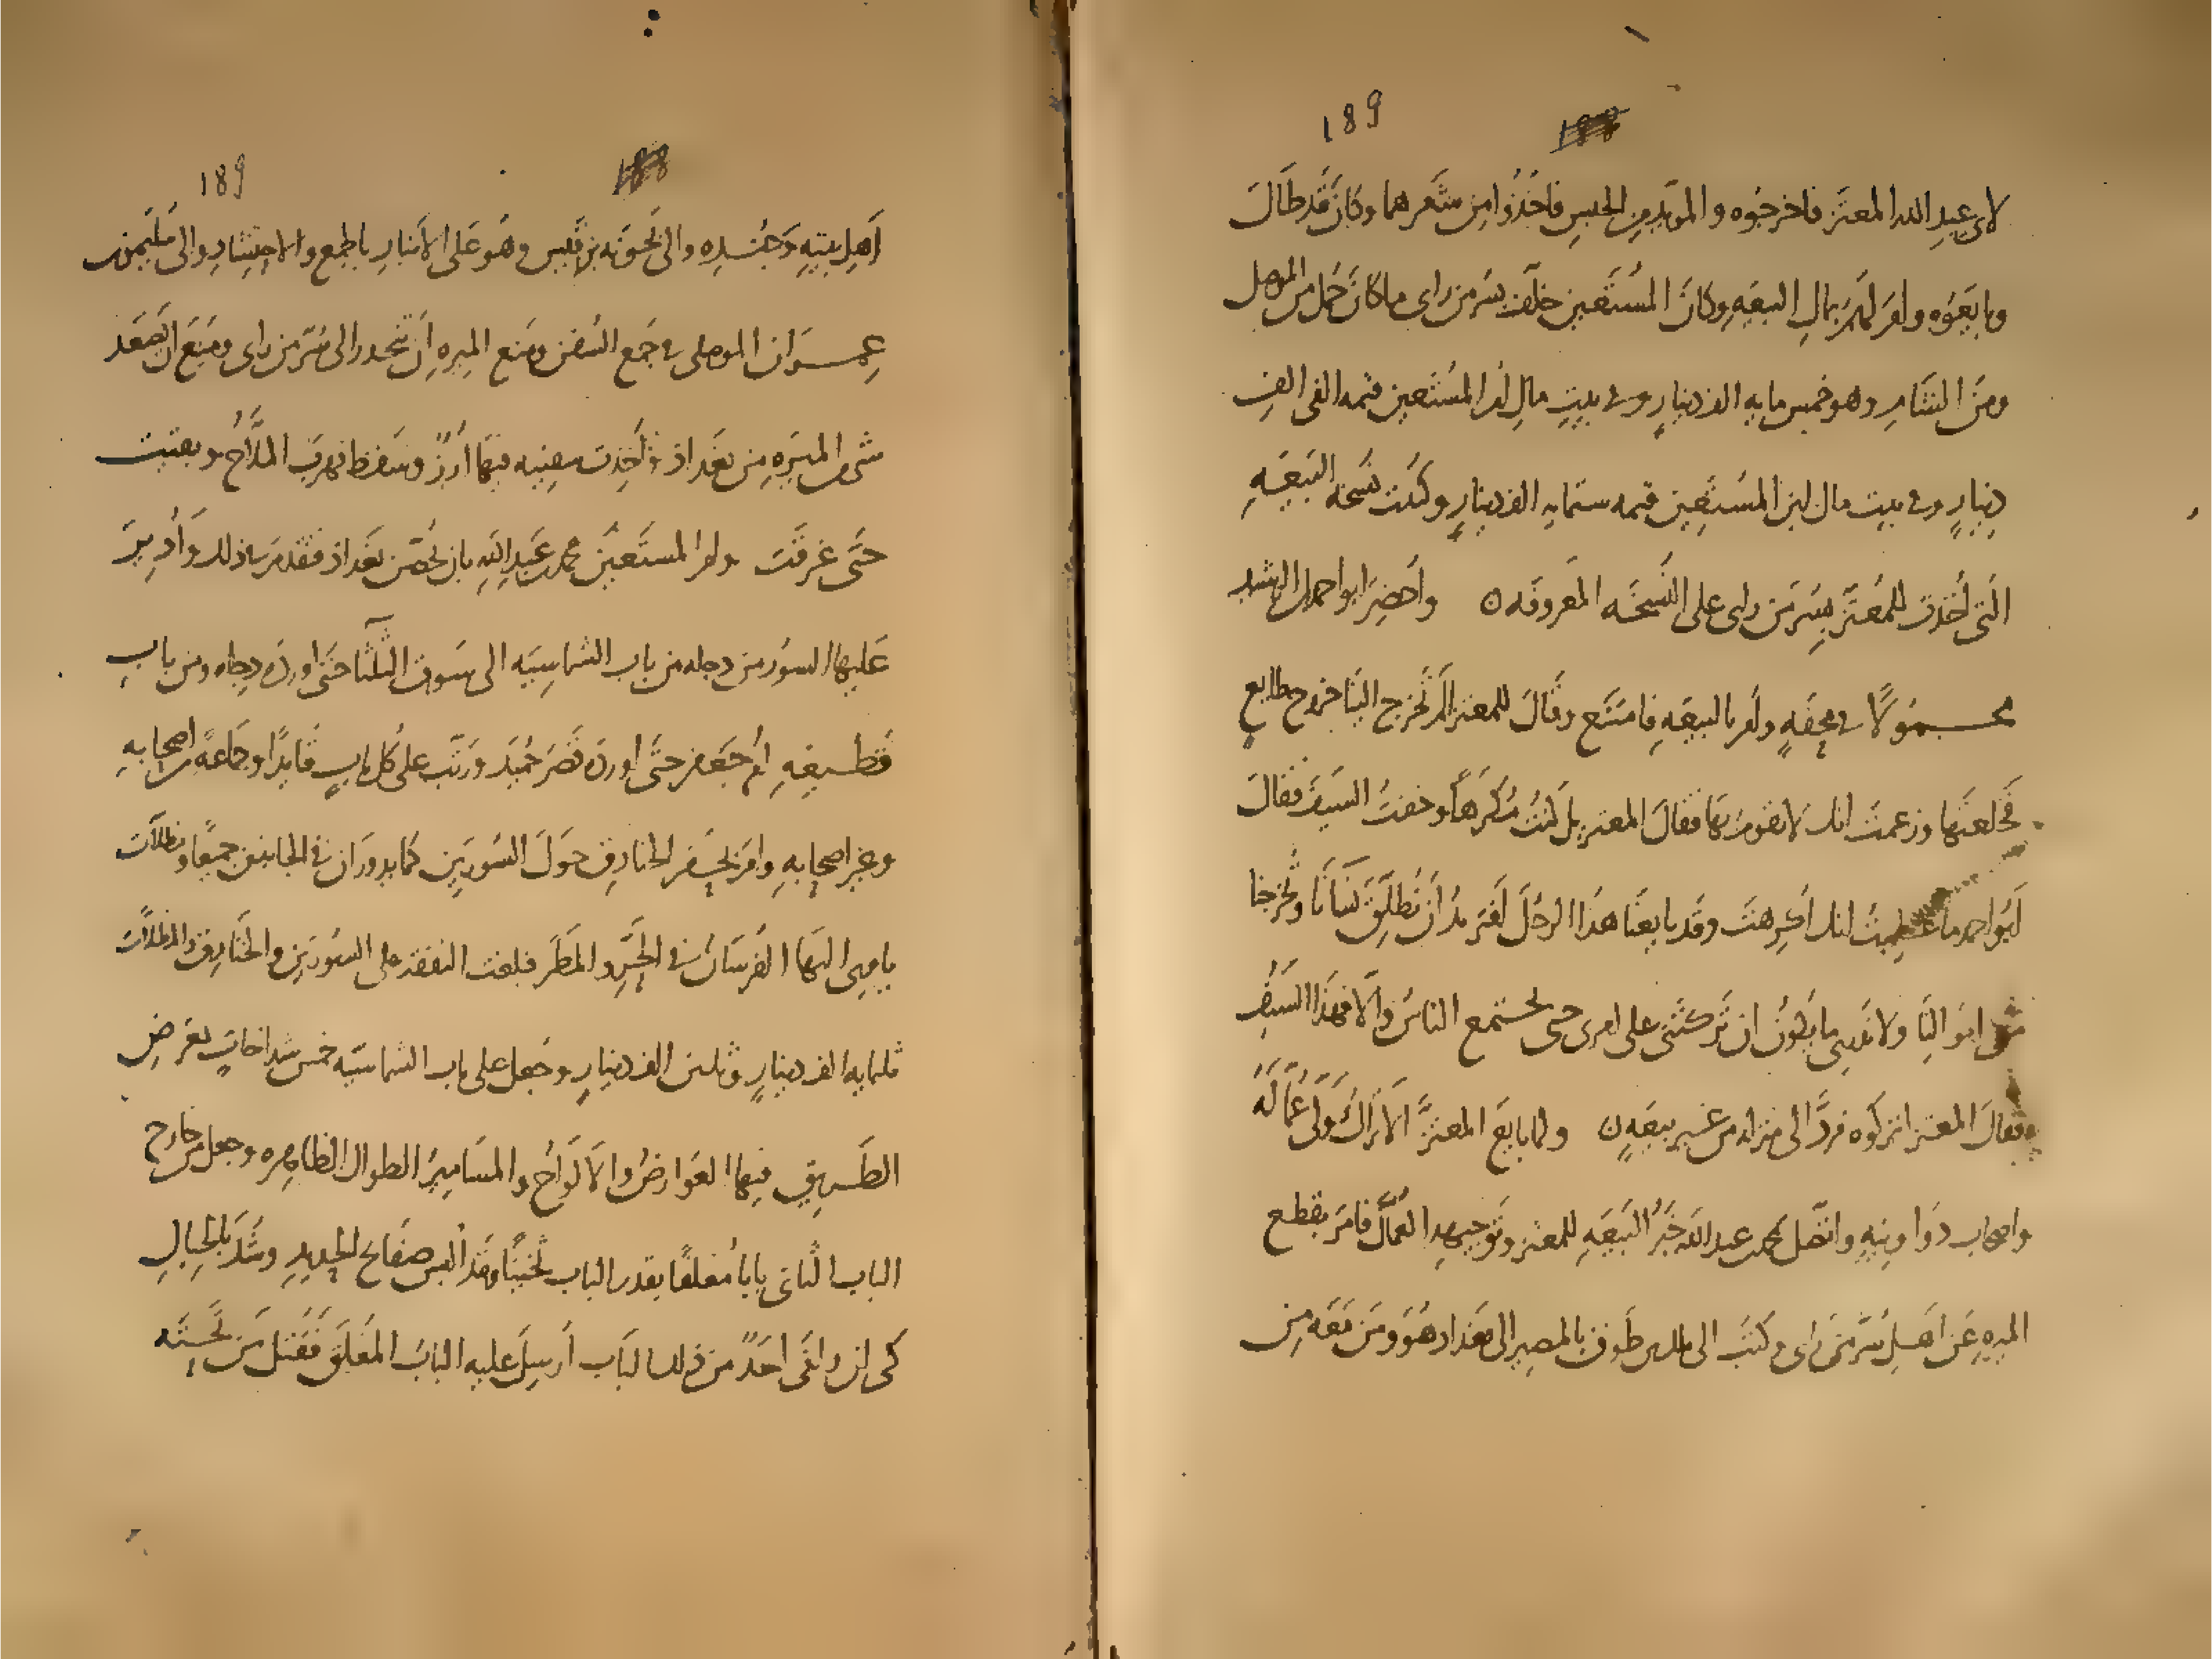 189
لابى عبد الله المعتز فاخرجوه والمويد من الحبس فاخذوا من شعرهما وكان قد طال
وبايعوه وامر لهم بمال البيعه وكان المستعين خلف بسر من راى ما كان حمل من الموصل
ومن الشام وهو خمس مايه الف دينار وفى بيت مال ام المستعين قيمه الفى الف
دينار وفى بيت مال ابن المستعين قيمه ستمايه الف دينار وكتبت نسخه البيعه
التى اخذت للمعتز بسر من راى على النسخه المعروفه ٥ واحضر ابو احمد بن الرشيد
محمولا فى محفه وامر بالبيعه فامتنع وقال للمعتز الم تخرج الينا خروج طايع
فخلعتها وزعمت انك لا تقوم بها فقال المعتز بل كنت مكرها وخفت السيف فقال
ابو احمد ما علمت انك اكرهت وقد بايعنا هذا الرجل افتريد ان نطلق نسانا وتخرجنا
من اموالنا ولا ندرى ما يكون ان تركتنى على امرى حتى يجتمع الناس والا فهذا السيف
فقال المعتز اتركوه فرد الى منزله من غير بيعه ٥ ولما بايع المعتز الاتراك ولى عماله
واصحاب دواوينه واتصل بمحمد بن عبد الله خبر البيعه للمعتز وتوجيهه العمال فامر بقطع
الميره عن اهل سر من راى وكتب الى ملك بن طوق بالمصير الى بغداد هو ومن معه من
189
اهل بيته وجنده والى نجوبه بن قيس وهو على الانبار باطمع والاحتشاد والى سليمن بن
عمران الموصلى فى جمع السفن ومنع الميره ان تنحدر الى سر من راى ومنع ان يصعد
شى من الميره من بغداذ واخذت سفينه فيها ارز وسقط فهرب الملاح وبقيت
حتى غرقت وامر المستعين محمد بن عبد الله بان يحصن بغداذ فتقدم فى ذلك وادير
عليها السور من دجله من باب الشماسيه الى سوق الثلثا حتى اورده دجله ومن باب
قطيعه ام جعفر حتى اورده قصر حميد ورتب على كل باب قايدا وجماعه من اصحابه
وغير اصحابه وامر بحفر الخنادق حول السورين كما يدوران فى الجانبين جميعا ومظلات
ياوى اليها الفرسان فى الحر والمطر فبلغت النفقه على السورين والخنادق والمظلات
ثلثمايه الف دينار وثلثين الف دينار وجعل على باب الشماسيه خمس شداخات بعرض
الطريق فيها العوارض والالواح والمسامير الطوال الظاهره وجعل من خارج
الباب الثانى بابا معلقا بقدر الباب ثخينا وقد البس صفائح الحديد وشد بالحبال
كى ان وافى احد من ذلك الباب ارسل عليه الباب المعلق فقتل من تحته